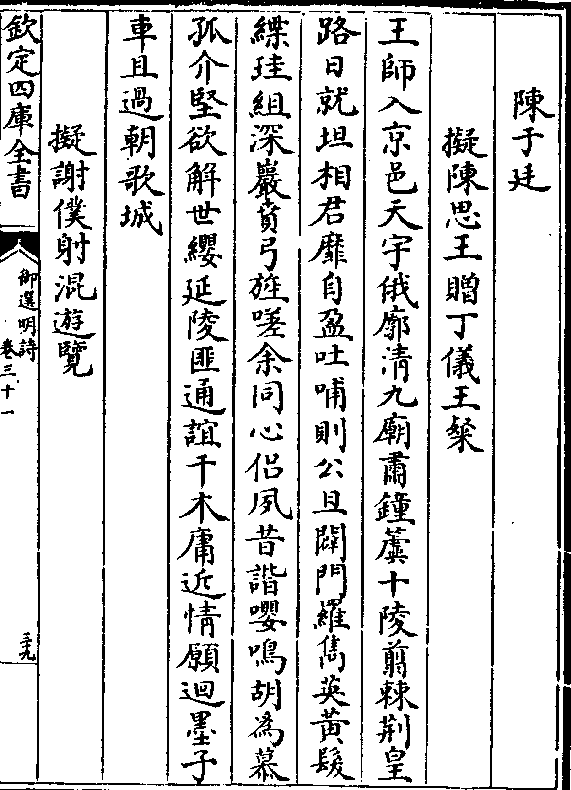 陳于廷
擬陳思王贈丁儀王粲
王師入京邑天宇俄廓清九廟肅鐘簴十陵翦棘荆皇
路日就坦相君靡自盈吐哺則公旦闢門羅雋英黄髮
縲珪組深巖賁弓旌嗟余同心侣夙昔諧嚶鳴胡為慕
孤介堅欲解世纓延陵匪通誼干木庸近情願迴墨子
車且過朝歌城
擬謝僕射混遊覽
欽定四庫全書
御選明詩
卷三十一
三九